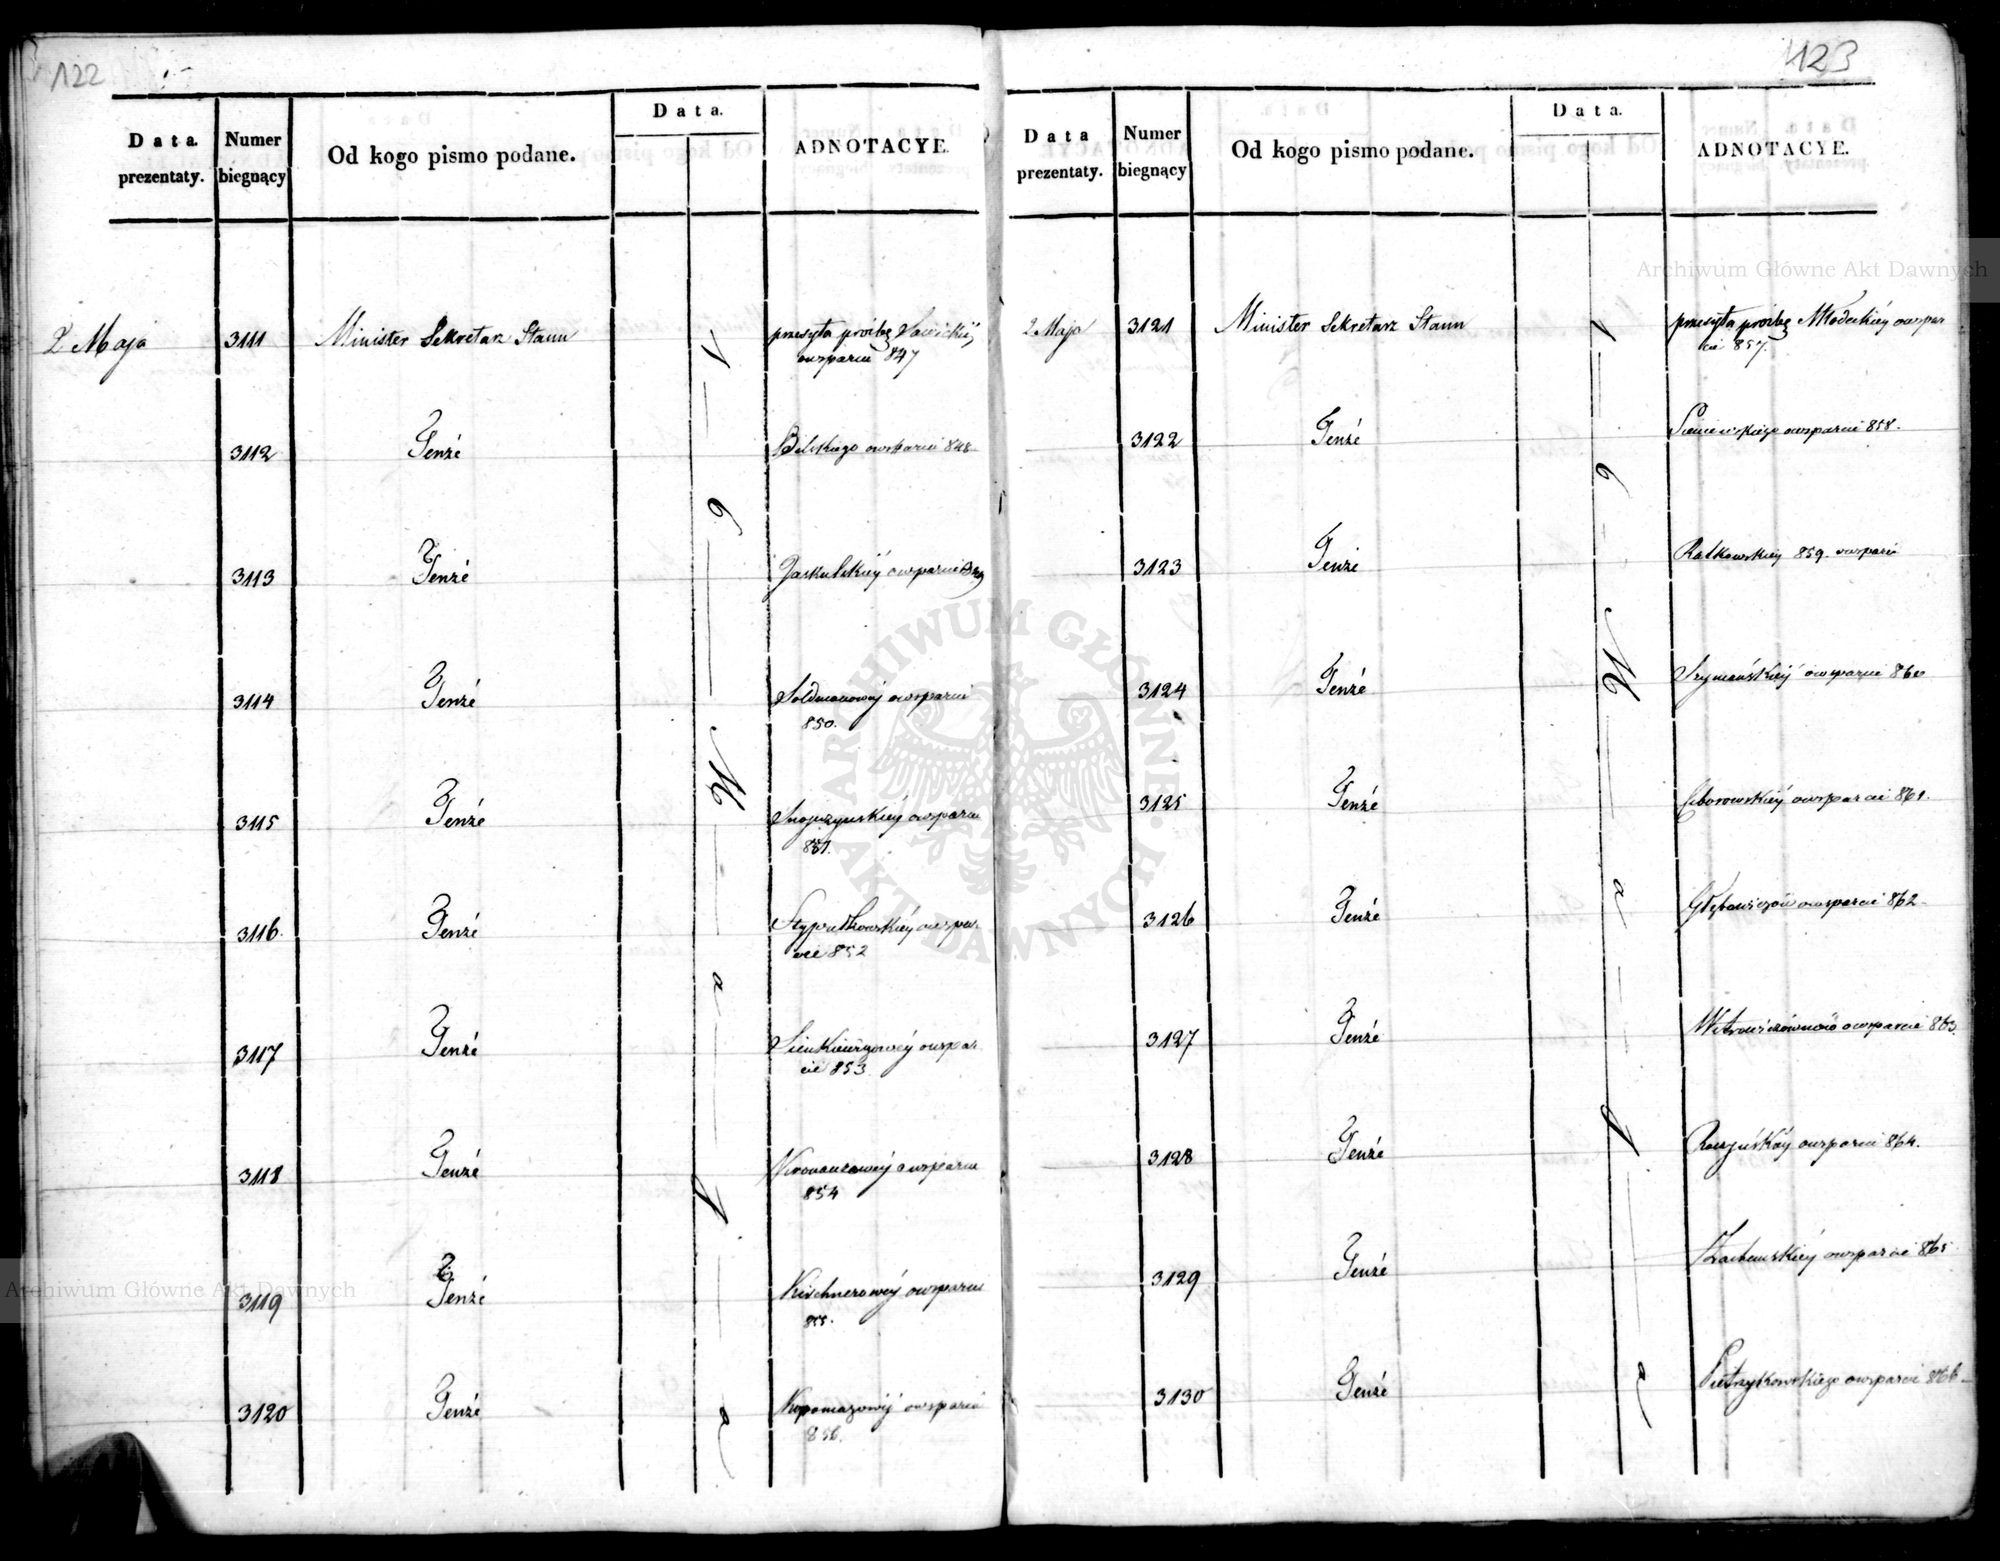 122
Data prezentaty.
Numer biegnący
Od kogo pismo podane.
Data.
ADNOTACYE.
2 Maja 3111 Minister Sekretarz Stanu przesyła prośbę Sawickiéy
o wsparcie 847
3112 Tenże Bilskiego o wsparcie 848
3113 Tenże Jaskulskiéy o wsparcie 849
3114 Tenże o wsparcie
850.
3115 Tenże o wsparcie
851.
3116 Tenże o wspar
cie 852
3117 Tenże Sienkiewiczowéy o wspar
cie 853
3118 Tenże o wsparcie
854
3119 Tenże Kirchnerowéy o wsparcie
855.
3120 Tenże o wsparcie
856.
19 Kwa 19 a
123
Data prezentaty.
Numer biegnący
Od kogo pismo podane.
Data.
ADNOTACYE.
2 Maja 3121 Minister Sekretarz Stanu przesyła prośbę Młodeckiéy o wspar
cie 857.
3122 Tenże o wsparcie 858.
3123 Tenże Ratkowskiéy 859. o wsparcie
3124 Tenże Szymańskiéy o wsparcie 860
3125 Tenże Ciborowskiéy o wsparcie 861.
3126 Tenże o wsparcie 862
3127 Tenże o wsparcie 863.
3128 Tenże o wsparcie 864.
3129 Tenże o wsparcie 865
3130 Tenże Pietrzykowskiego o wsparcie 866
Archiwum Główne Akt Dawnych
ARCHIWUM GŁÓWNE AKT DAWNYCH
Archiwum Główne Akt Dawnych